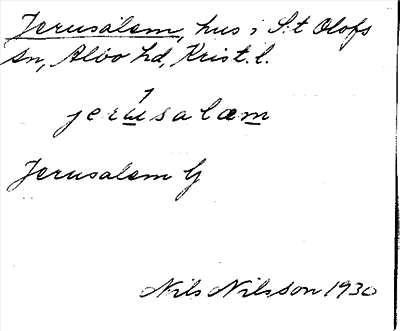 Jerusalem, hus i S:t Olofs
sn, Albo hd, Krist. l.
jerusalæm
Jerusalem G
Nils Nilsson 1930